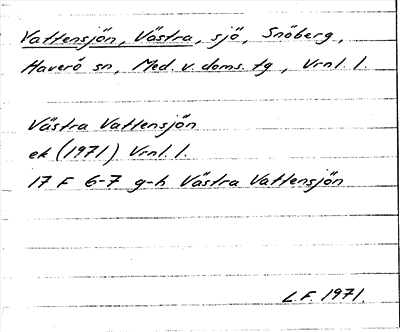 Vattensjön, Västra, sjö, Snöberg,
Haverö sn, Med. v. doms. tg, Vrnl. l.
Västra Vattensjön
ek (1971) Vrnl. l.
17 F 6-7 g-h Västra Vattensjön
L.F. 1971.